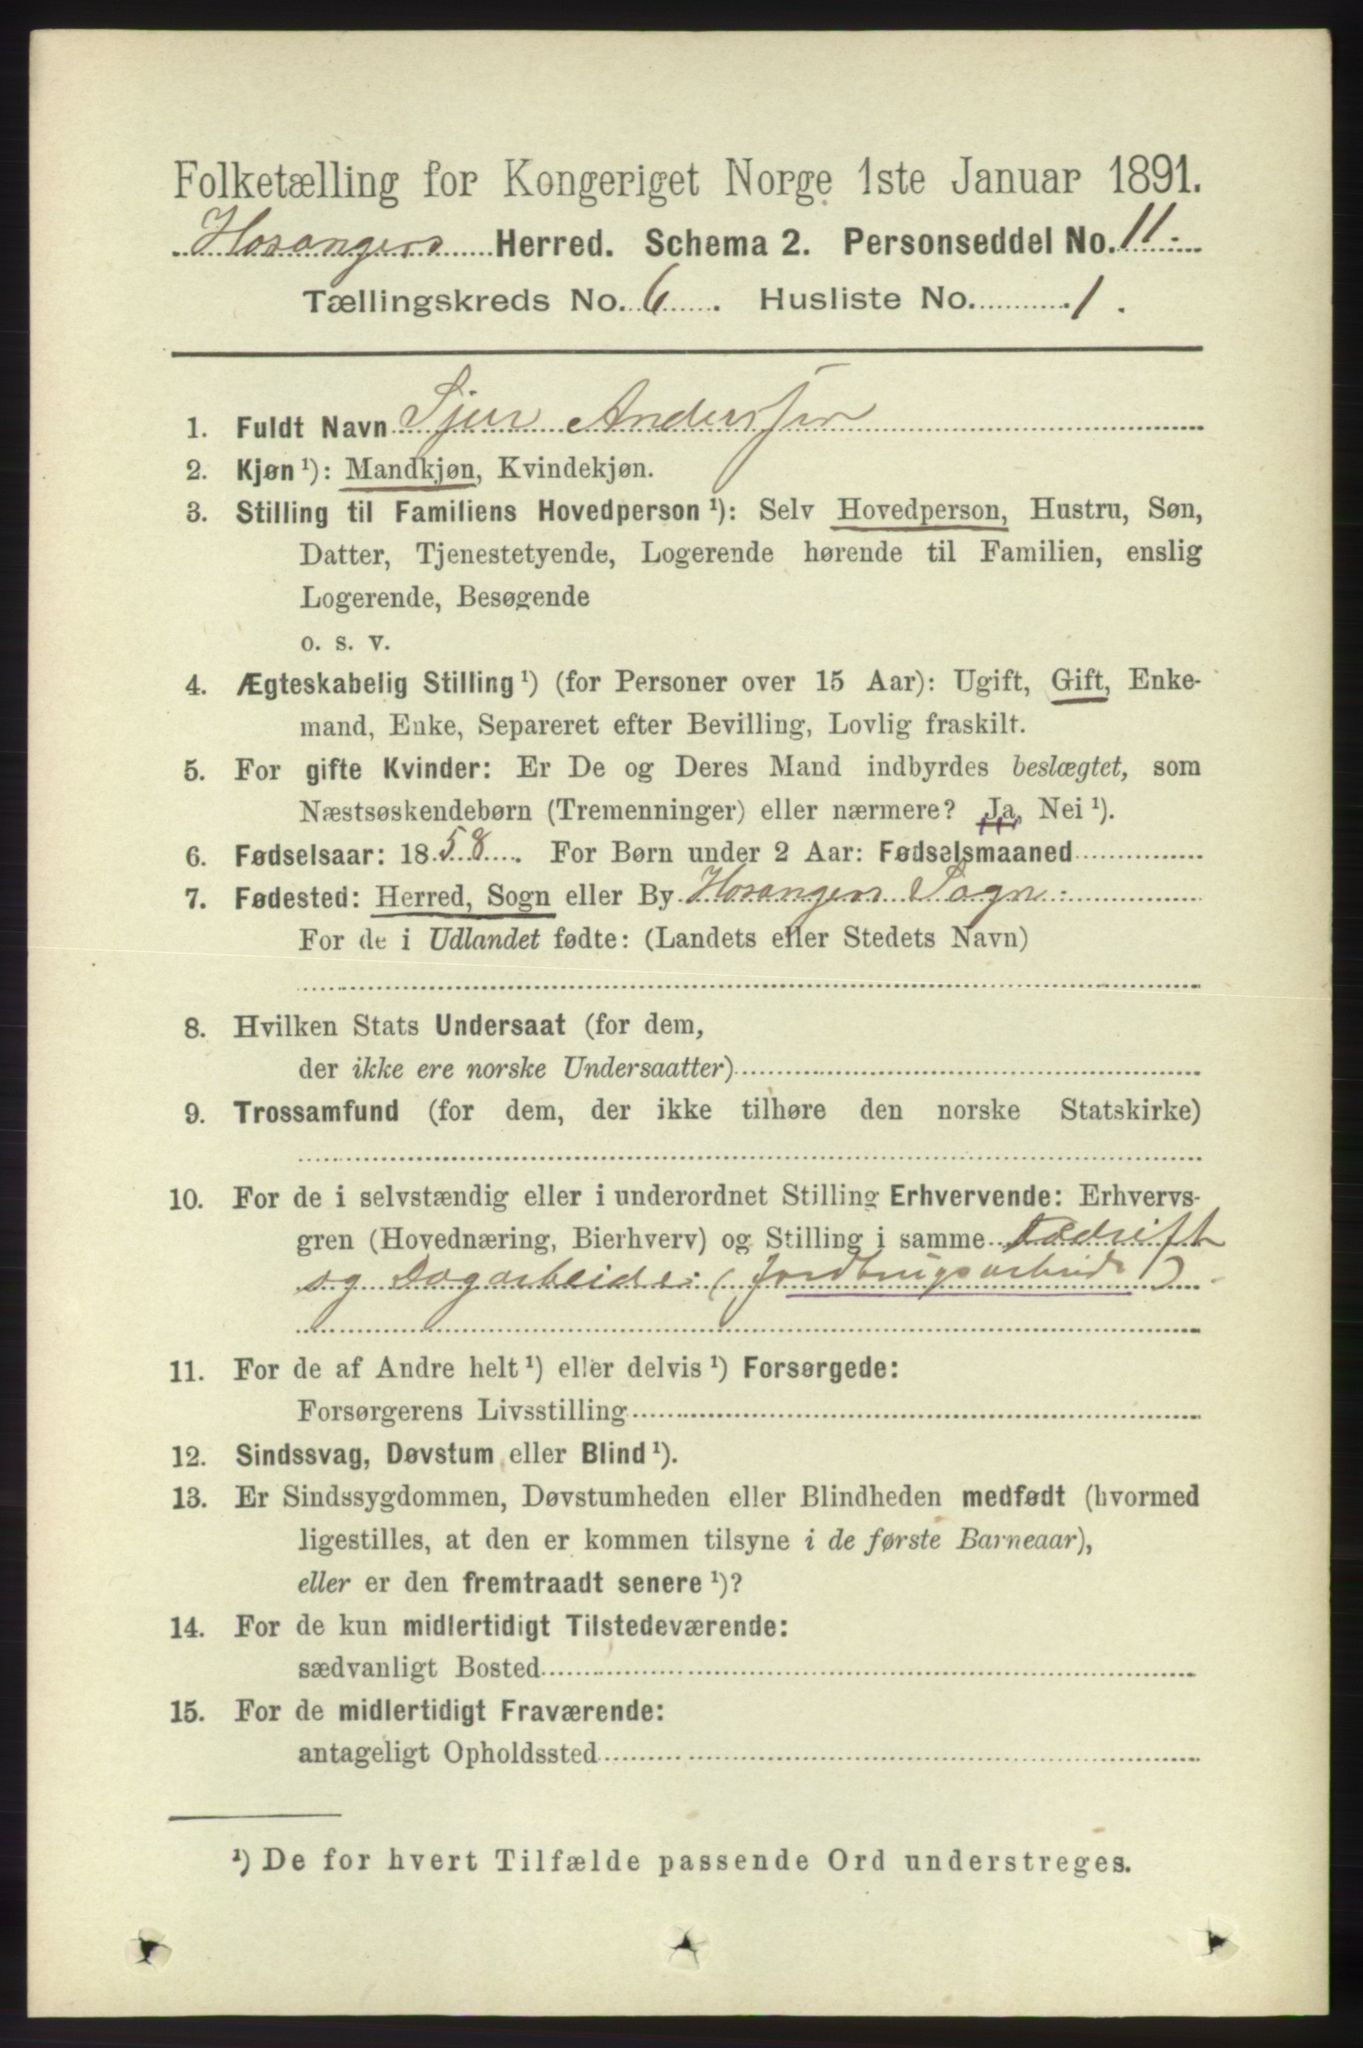 Folketælling for Kongeriget Norge 1ste Januar 1891.
Hosangers Herred. Schema 2. Personseddel No. 11.
Tællingskreds No. 6. Husliste No. 1.
1. Fuldt Navn Sjur Andersen
2. Kjøn ¹): Mandkjøn, Kvindekjøn.
3. Stilling til Familiens Hovedperson ¹): Selv Hovedperson, Hustru, Søn,
Datter, Tjenestetyende, Logerende hørende til Familien, enslig
Logerende, Besøgende
o. s. v.
4. Ægteskabelig Stilling ¹) (for Personer over 15 Aar): Ugift, Gift, Enke-
mand, Enke, Separeret efter Bevilling, Lovlig fraskilt.
5. For gifte Kvinder: Er De og Deres Mand indbyrdes beslægtet, som
Næstsøskendebørn (Tremenninger) eller nærmere? Ja, Nei ¹).
6. Fødselsaar: 1858. For Børn under 2 Aar: Fødselsmaaned
7. Fødested: Herred, Sogn eller By Hosangers Sogn:
For de i Udlandet fødte: (Landets eller Stedets Navn)
8. Hvilken Stats Undersaat (for dem,
der ikke ere norske Undersaatter)
9. Trossamfund (for dem, der ikke tilhøre den norske Statskirke)
10. For de i selvstændig eller i underordnet Stilling Erhvervende: Erhvervs-
gren (Hovednæring, Bierhverv) og Stilling i samme
og Dagarbeide: (Jordbrugsarbeide)
11. For de af Andre helt ¹) eller delvis ¹) Forsørgede:
Forsørgerens Livsstilling
12. Sindssvag, Døvstum eller Blind ¹).
13. Er Sindssygdommen, Døvstumheden eller Blindheden medfødt (hvormed
ligestilles, at den er kommen tilsyne i de første Barneaar),
eller er den fremtraadt senere ¹)?
14. For de kun midlertidigt Tilstedeværende:
sædvanligt Bosted
15. For de midlertidigt Fraværende:
antageligt Opholdssted
¹) De for hvert Tilfælde passende Ord understreges.